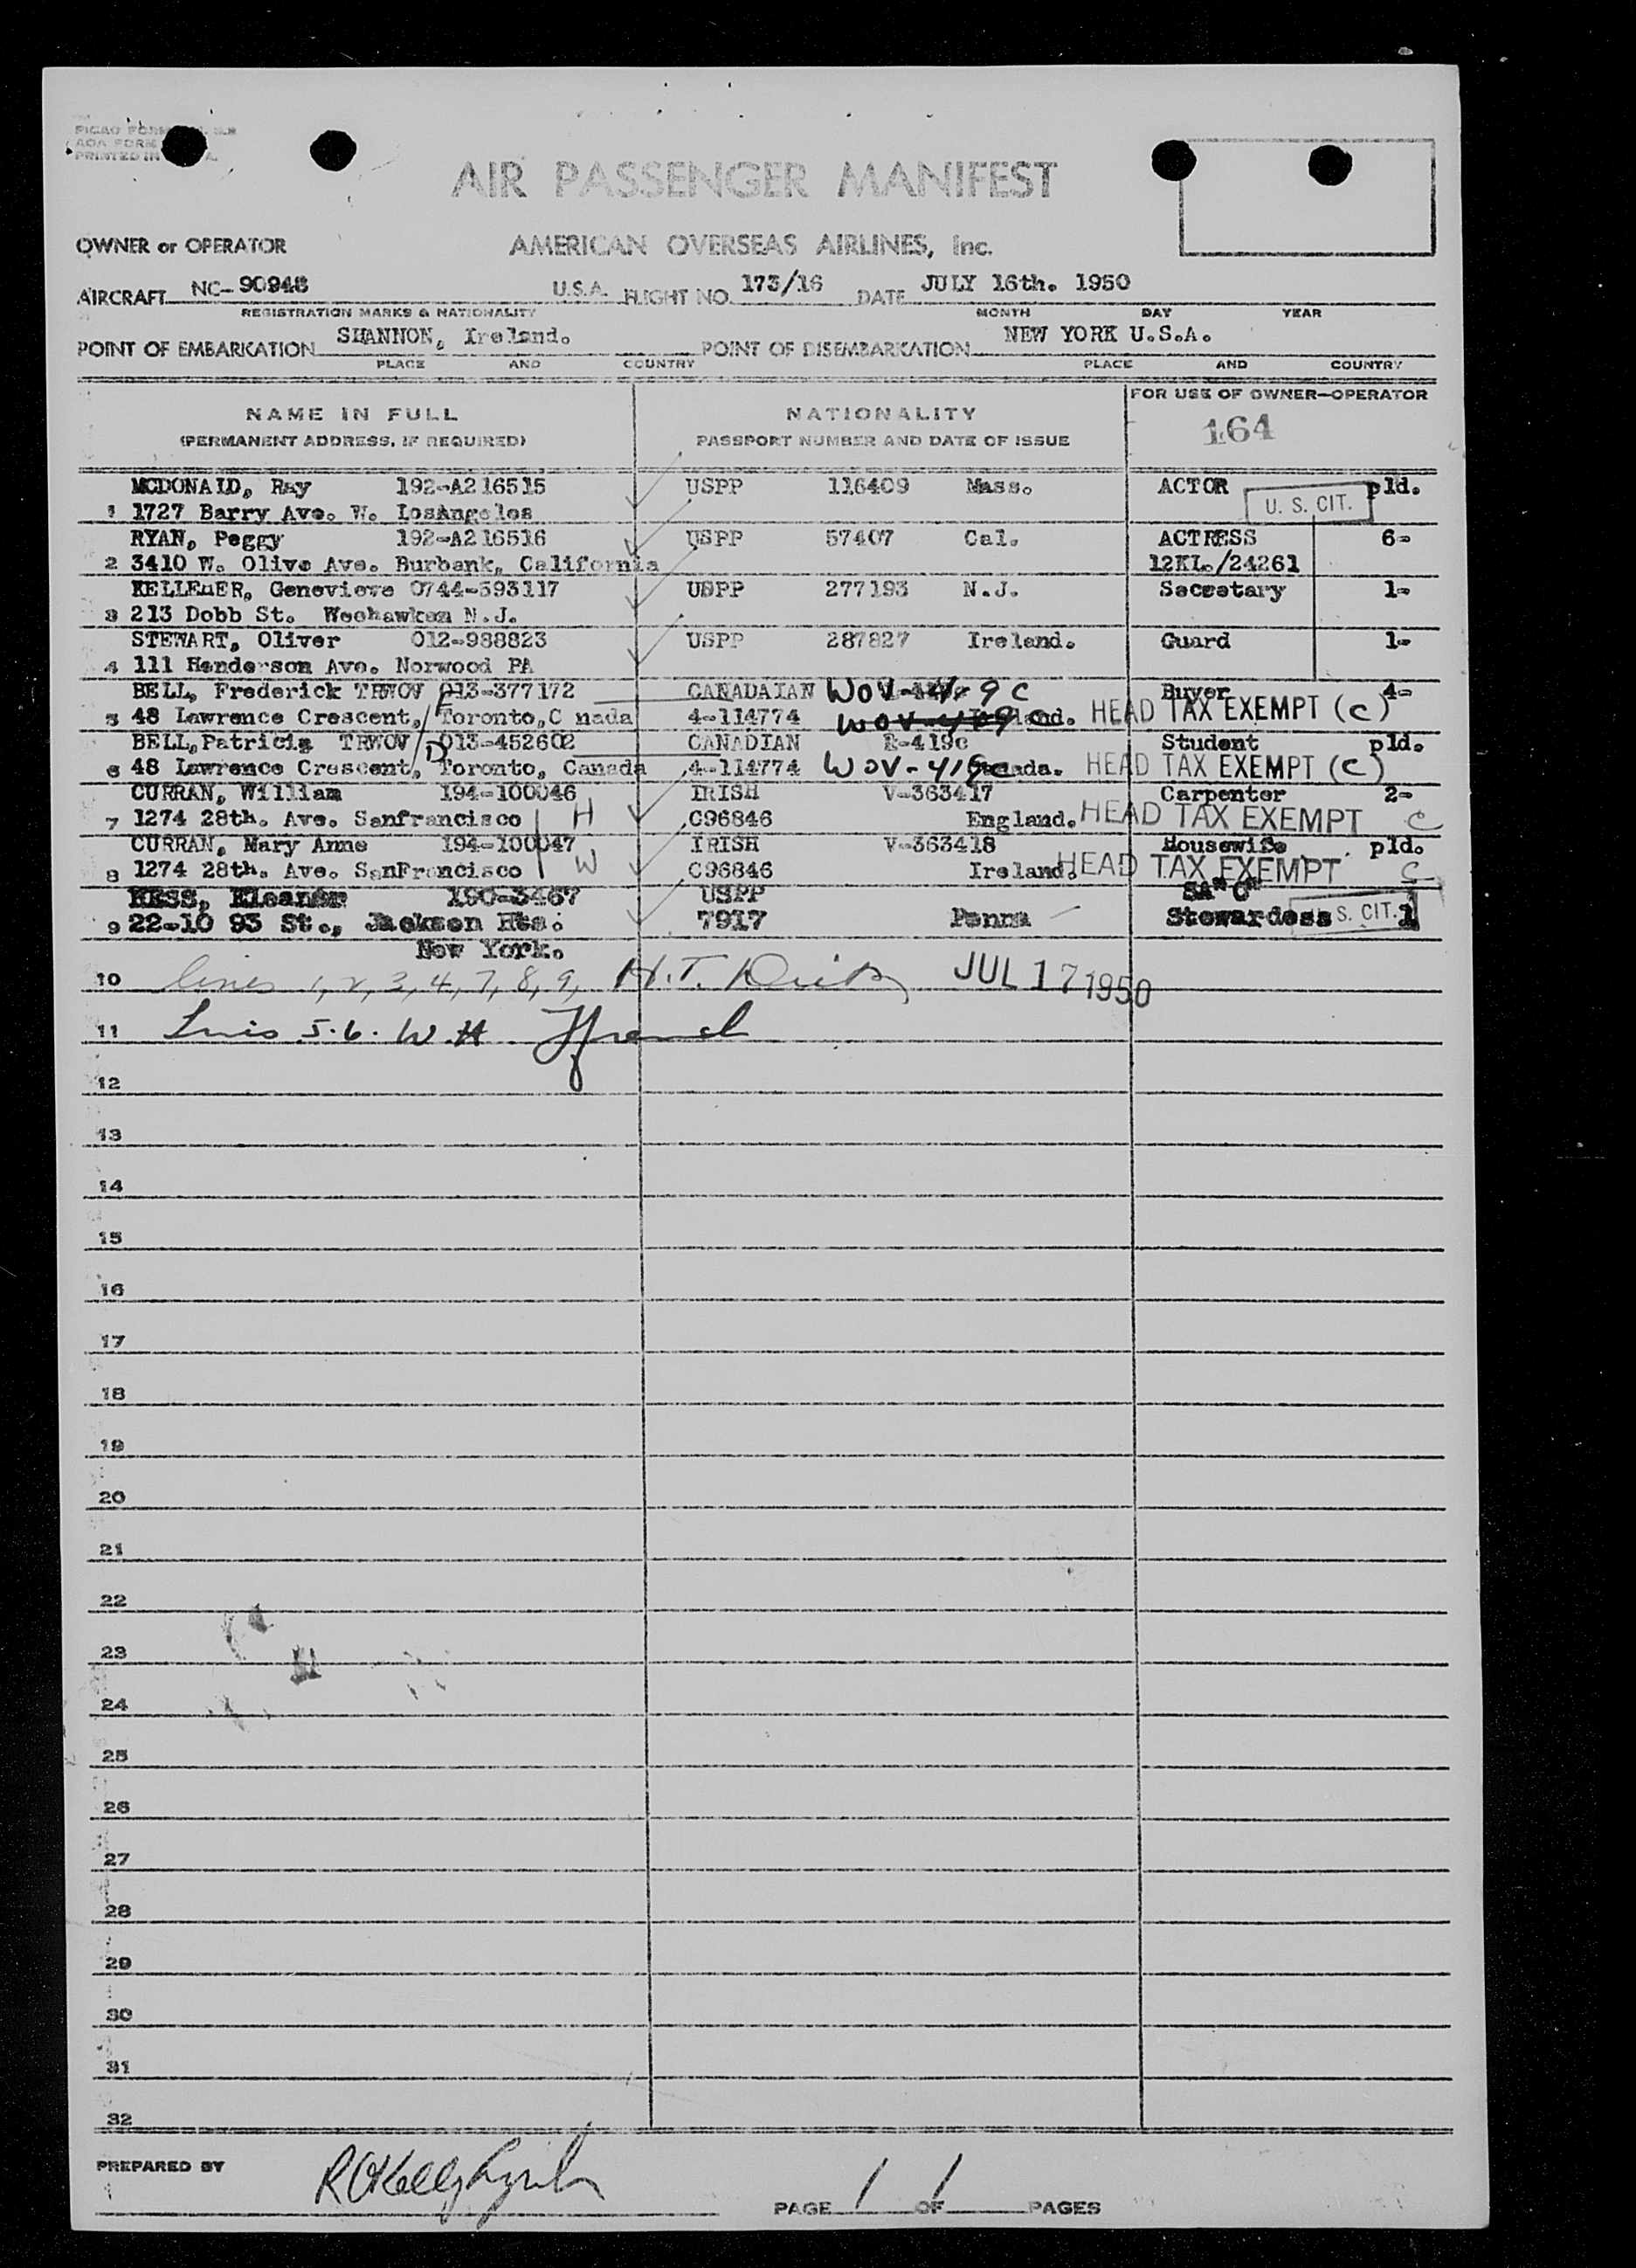 PICAO FORM
AOA FORM
PRINTED IN
AIR PASSENGER MANIFEST
OWNER or OPERATOR AMERICAN OVERSEAS AIRLINES, Inc.
AIRCRAFT NC-90948 U.S.A. FLIGHT NO. 173/16 DATE JULY 16th. 1950
REGISTRATION MARKS & NATIONALITY MONTH DAY YEAR
POINT OF EMBARKATION SHANNON, Ireland. POINT OF DISEMBARKATION NEW YORK U.S.A.
PLACE AND COUNTRY PLACE AND COUNTRY
NAME IN FULL NATIONALITY FOR USE OF OWNER-OPERATOR
(PERMANENT ADDRESS, IF REQUIRED) PASSPORT NUMBER AND DATE OF ISSUE 164
MCDONALD, Ray 192-A216515 USPP 116409 Mass. ACTOR pld.
1 1727 Barry Ave. W. LosAngeles U. S. CIT.
RYAN, Peggy 192-A216516 USPP 57407 Cal. ACTRESS 6-
2 3410 W. Olive Ave. Burbank, California 12KL./24261
KELLEHER, Genevieve 0744-593117 USPP 277193 N.J. Secretary 1-
3 213 Dobb St. Weehawken N.J.
STEWART, Oliver 012-988823 USPP 287827 Ireland. Guard 1-
4 111 Henderson Ave. Norwood PA
BELL, Frederick TRWOV 013-377172 CANADAIAN WOV-419C Buyer 4-
5 48 Lawrence Crescent, F Toronto,C nada 4-114774 WOV-409C HEAD TAX EXEMPT (C)
BELL,Patricia TRWOV 013-452602 CANADIAN R-419c Student pld.
6 48 Lawrence Crescent, D Toronto, Canada 4-114774 WOV-419C HEAD TAX EXEMPT (C)
CURRAN, William 194-100046 IRISH V-363417 Carpenter 2-
7 1274 28th. Ave. Sanfrancisco H C96846 England. HEAD TAX EXEMPT C
CURRAN, Mary Anne 194-100047 IRISH V-363418 Housewife pld.
8 1274 28th. Ave. SanFrancisco W C96846 Ireland. HEAD TAX EXEMPT C
HESS, Eleanor 190-3467 USPP
9 22-10 93 St., Jackson Hts. 7917 Penna Stewardess U. S. CIT. 1
New York.
10 lines 1, 2, 3, 4, 7, 8, 9, H.T. JUL 17 1950
11 5.6. W.H
12
13
14
15
16
17
18
19
20
21
22
23
24
25
26
27
28
29
30
31
32
PREPARED BY
PAGE 1 OF 1 PAGES